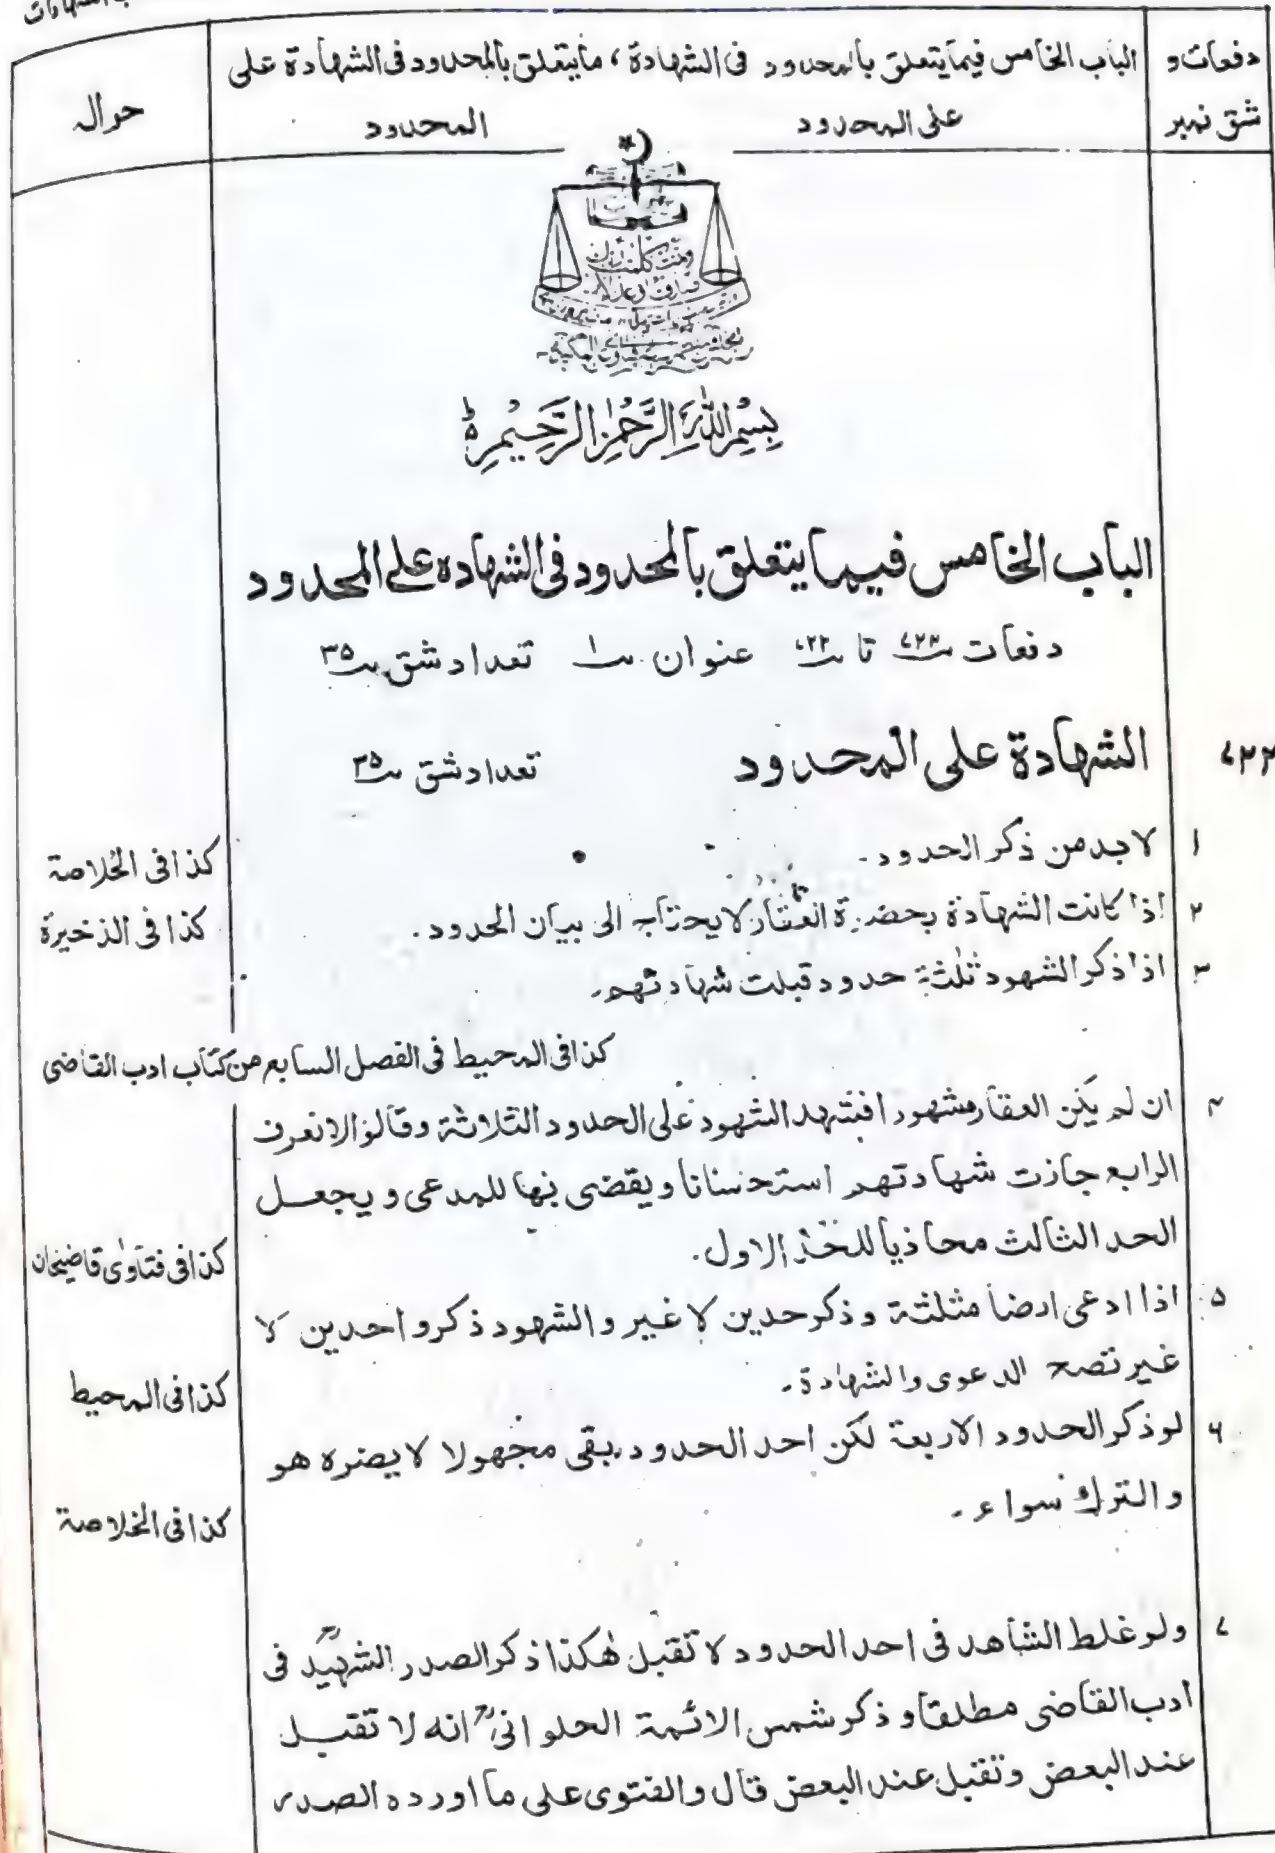 دفعات و
شق نمبر
الباب الخامس فیما یتعلق بالمحدود فی الشهادة ، ما یتعلق بالمحدود فی الشهادة علی
علی المحدود
المحدود
حوالہ
بِسْمِ اللّٰهِ الرَّحْمٰنِ الرَّحِیْمِ ۝
الباب الخامس فیما یتعلق بالمحدود فی الشهاده علی المحدود
دفعات تا عنوان ۱ تعداد شق ۳۵
الشهادة علی المحدود تعداد شق ۳۵
۱ لا بد من ذکر الحدود۔
کذا فی الخلاصة
۲ اذا کانت الشهادة بحضرة العقار لا یحتاج الی بیان الحدود۔
کذا فی الذخیرة
۳ اذا ذکر الشهود ثلٰثة حدود قبلت شهادتهم۔
کذا فی المحیط فی الفصل السابع من کتاب ادب القاضی
۴ ان لم یکن العقار مشهورا فشهد الشهود علی الحدود الثلاثة وقالوا لا نعرف
الرابع جازت شهادتهم استحسانا ویقضی بها للمدعی و یجعل
الحد الثالث محاذیا للحد الاول۔
کذا فی فتاوٰی قاضیخان
۵ اذا ادعی ارضا مثلثة و ذکر حدین لا غیر و الشهود ذکروا حدین لا
غیر تصح الدعوی والشهادة۔
کذا فی المحیط
۶ لو ذکر الحدود الاربعة لکن احد الحدود یبقی مجهولا لا یضره هو
و الترک سواء۔
کذا فی الخلاصة
۷ ولو غلط الشاهد فی احد الحدود لا تقبل هٰکذا ذکر الصدر الشهید فی
ادب القاضی مطلقا و ذکر شمس الائمة الحلوانی انه لا تقبل
عند البعض وتقبل عند البعض قال والفتوی علی ما اورده الصدر